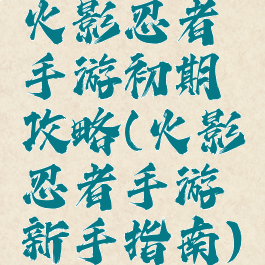 火影忍者
手游初期
攻略(火影
忍者手游
新手指南)